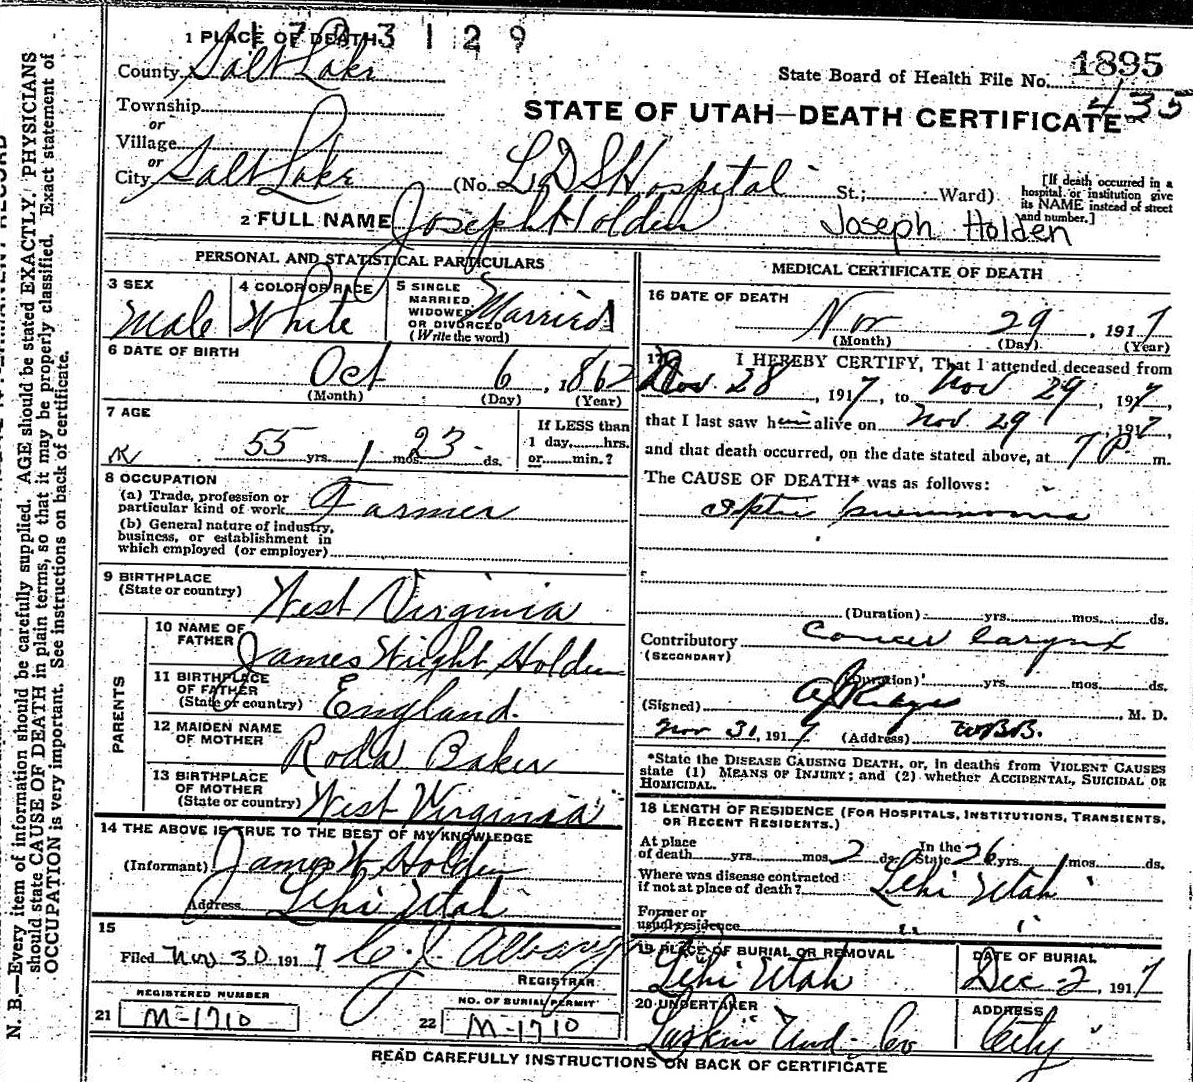 1703129
1 PLACE OF DEATH
County Salt Lake
State Board of Health File No. 1895
435
Township
or
Village
or
City Salt Lake
STATE OF UTAH—DEATH CERTIFICATE
(No. LDS Hospital St.; Ward)
[If death occurred in a
hospital or institution give
its NAME instead of street
and number.]
2 FULL NAME Joseph Holden
Joseph Holden
PERSONAL AND STATISTICAL PARTICULARS
3 SEX
Male
4 COLOR OR RACE
White
5 SINGLE
MARRIED
WIDOWED
OR DIVORCED
(Write the word)
Married
6 DATE OF BIRTH
Oct 6, 1862
(Month) (Day) (Year)
7 AGE
55 yrs. 1 mos. 23 ds.
If LESS than
1 day, hrs.
or min.?
8 OCCUPATION
(a) Trade, profession or
particular kind of work Farmer
(b) General nature of industry,
business, or establishment in
which employed (or employer)
9 BIRTHPLACE
(State or country) West Virginia
PARENTS
10 NAME OF
FATHER James Wright Holden
11 BIRTHPLACE
OF FATHER
(State or country) England.
12 MAIDEN NAME
OF MOTHER Roda Baker
13 BIRTHPLACE
OF MOTHER
(State or country) West Virginia
14 THE ABOVE IS TRUE TO THE BEST OF MY KNOWLEDGE
(Informant) James W Holden
Address Lehi Utah
15
Filed Nov 30 1917 C. J.
REGISTRAR
REGISTERED NUMBER
21 M-1710
NO. OF BURIAL PERMIT
22 M-1710
MEDICAL CERTIFICATE OF DEATH
16 DATE OF DEATH
Nov 29, 1917
(Month) (Day) (Year)
17 I HEREBY CERTIFY, That I attended deceased from
Nov. 28, 1917, to Nov 29, 1917,
that I last saw him alive on Nov. 29 1917,
and that death occurred, on the date stated above, at 7 P. m.
The CAUSE OF DEATH* was as follows:
Septic pneumonia
(Duration) yrs. mos. ds.
Contributory Cancer larynx
(SECONDARY)
(Duration) yrs. mos. ds.
(Signed) M. D.
Nov 31, 1917 (Address) W.B.B.
*State the DISEASE CAUSING DEATH, or, in deaths from VIOLENT CAUSES
state (1) MEANS OF INJURY; and (2) whether ACCIDENTAL, SUICIDAL OR
HOMICIDAL.
18 LENGTH OF RESIDENCE (FOR HOSPITALS, INSTITUTIONS, TRANSIENTS,
OR RECENT RESIDENTS.)
At place
of death yrs. mos. 2 ds. In the State 26 yrs. 1 mos. ds.
Where was disease contracted
if not at place of death? Lehi Utah
Former or
usual residence " "
19 PLACE OF BURIAL OR REMOVAL
Lehi Utah
DATE OF BURIAL
Dec 2, 1917
20 UNDERTAKER
Larkin Und. Co
ADDRESS
City
READ CAREFULLY INSTRUCTIONS ON BACK OF CERTIFICATE
N. B.—Every item of information should be carefully supplied. AGE should be stated EXACTLY. PHYSICIANS
should state CAUSE OF DEATH in plain terms, so that it may be properly classified. Exact statement of
OCCUPATION is very important. See instructions on back of certificate.